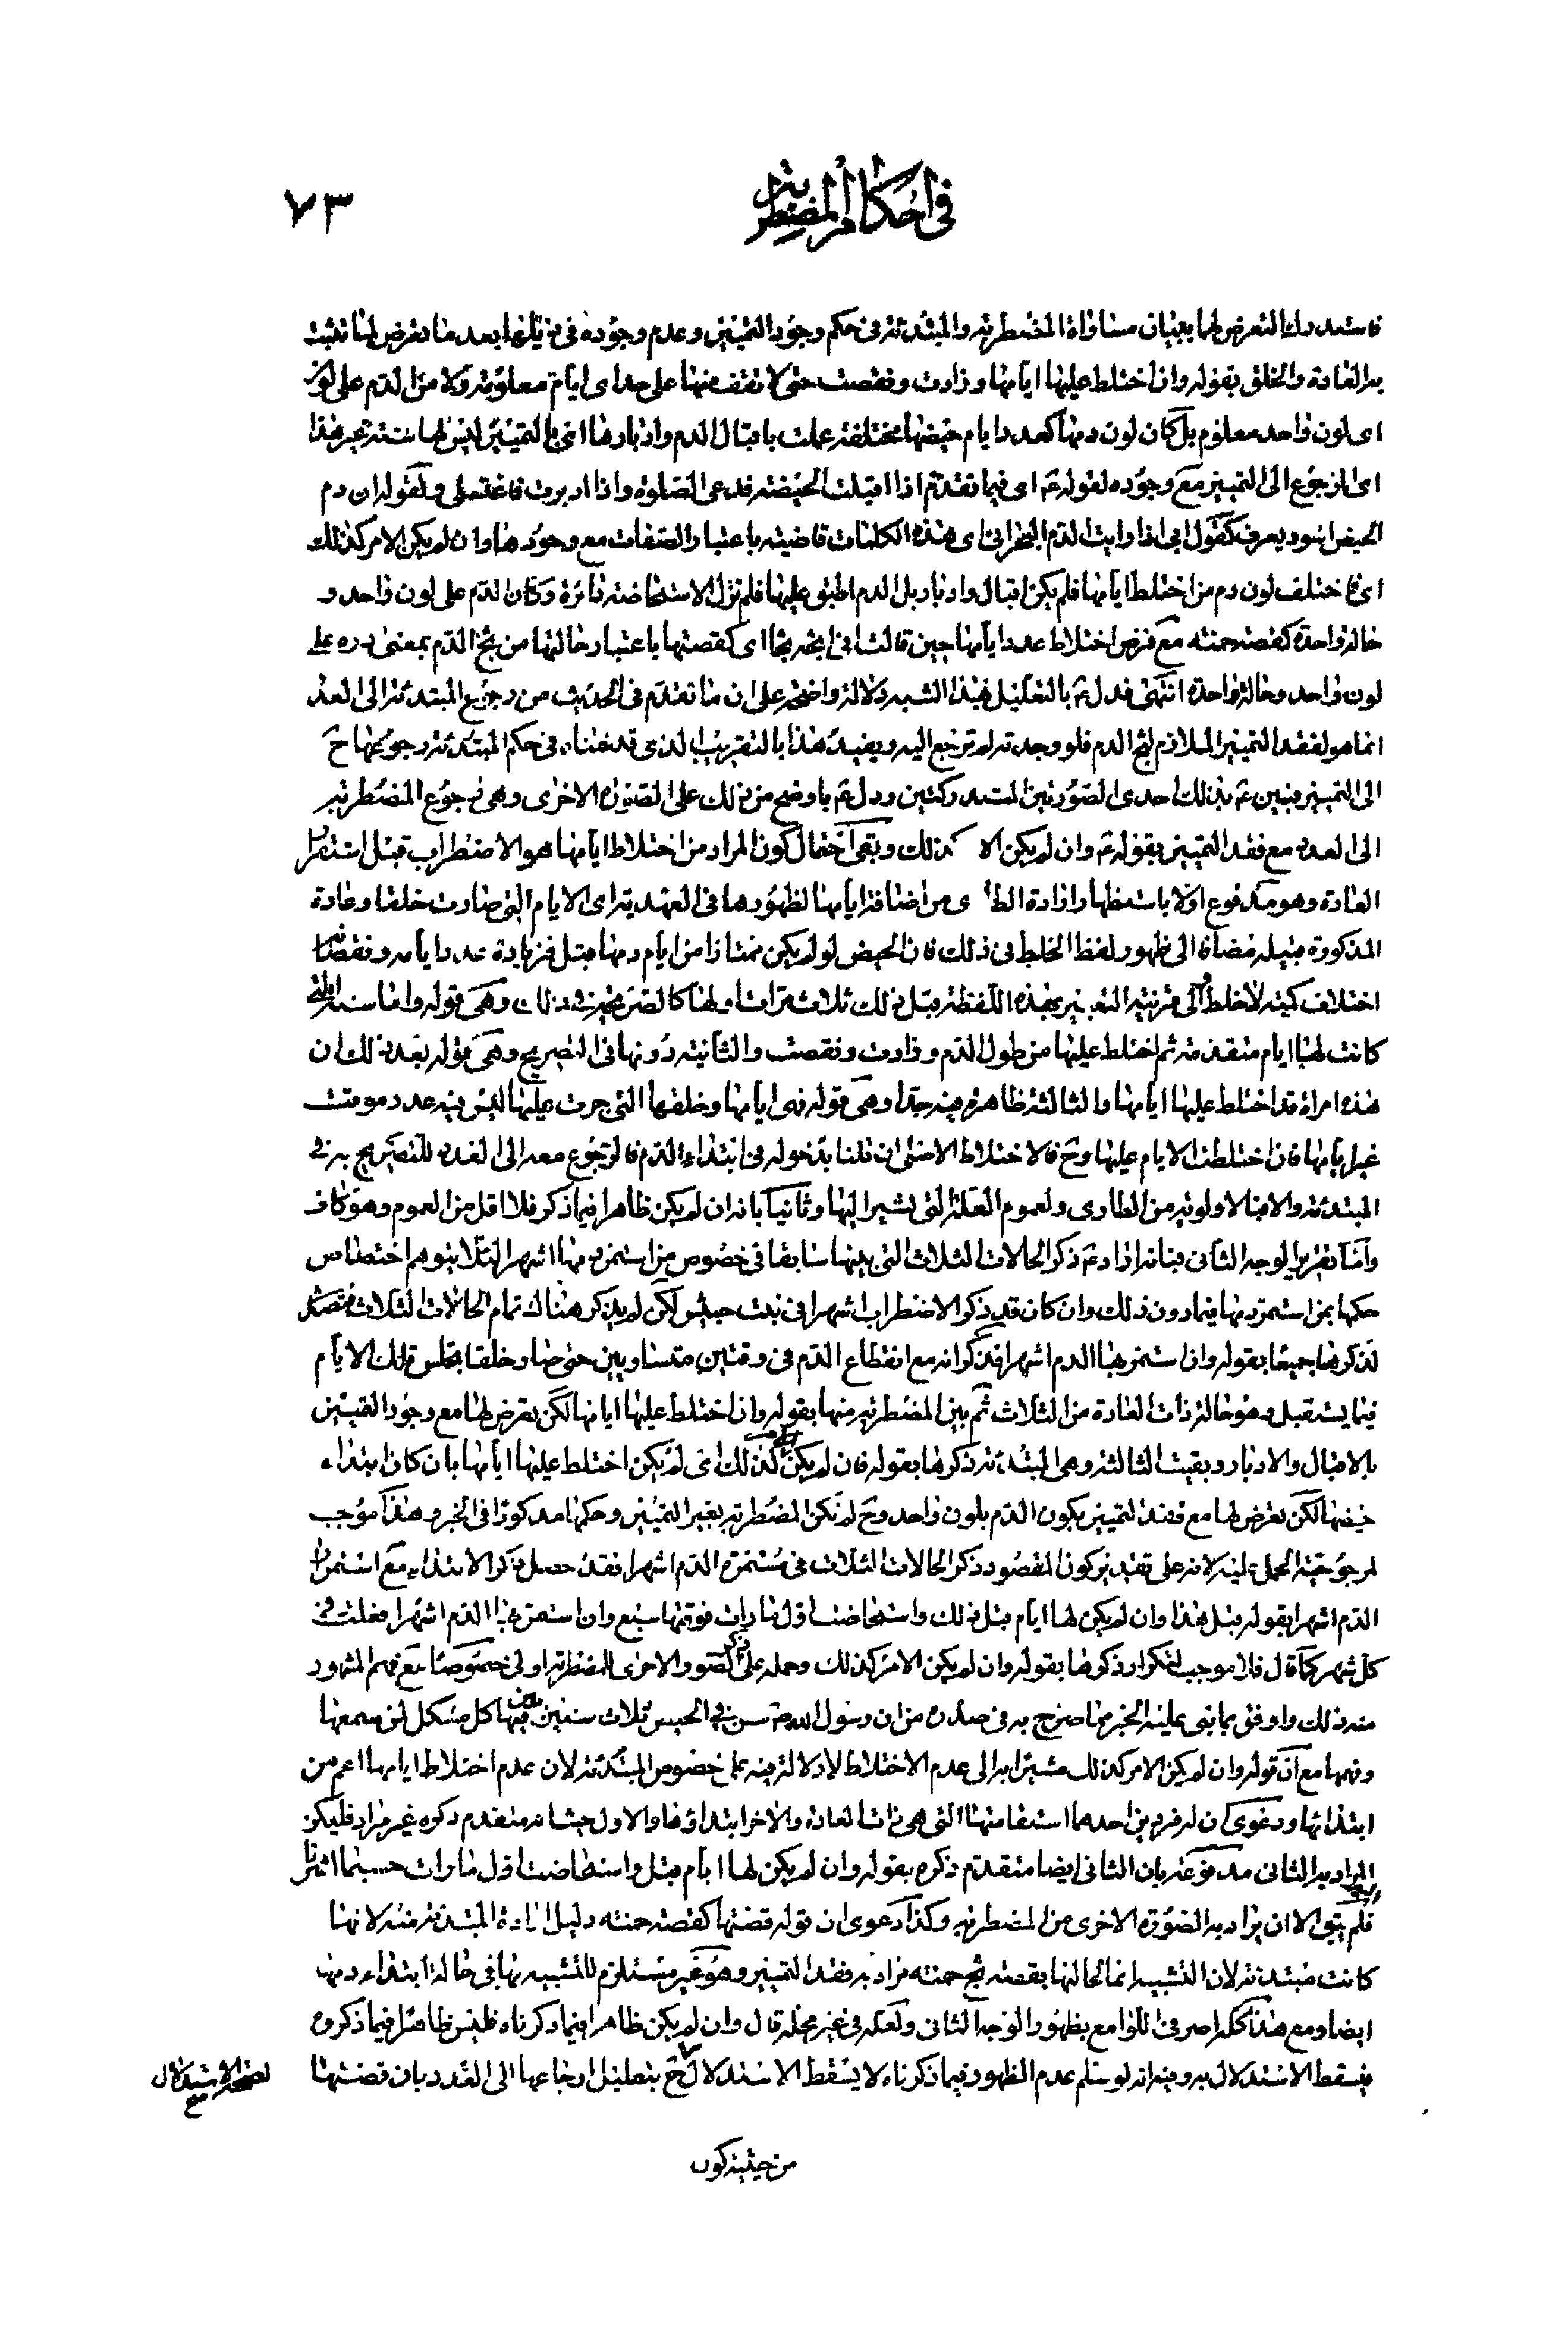 في احكام المضطربة
٧٣
فاستدرك التعرض لها ببيان مساواة المضطربة والمبتدئة في حكم وجود التميز وعدم وجوده في ذيلها بعد ما تعرض لما تثبت
به العادة والخلق بقوله وان اختلط عليها ايامها وزادت ونقصت حتى لا تقف منها على حد اى ايام معلومة ولا من الدم على لون
اى لون واحد معلوم بل كان لون دمها كعدد ايام حيضها مختلفة عملت باقبال الدم وادباره اى بالتميز ليس لها سنة غير هذا
اى الرجوع الى التميز مع وجوده لقوله ع اى فيما تقدم اذا اقبلت الحيضة فدعى الصلوة واذا ادبرت فاغتسلى ولقوله ان دم
الحيض اسود يعرف كقول ابى اذا رايت الدم البحرانى اى هذه الكلمات قاضية باعتبار الصفات مع وجودها وان لم يكن الامر كذلك
اى فاختلف لون دم من اختلط ايامها فلم يكن اقبال وادبار بل الدم اطبق عليها فلم تزل الاستحاضة دائرة وكان الدم على لون واحد و
حالة واحدة كقصة حمنة مع فرض اختلاط عدد ايامها حين قالت انى اثجه ثجا اى كقصتها باعتبار حالتها من ثج الدم بمعنى دره على
لون واحد وحالة واحدة انتهى فدل ع بالتعليل فهذا الشبه دلالة واضحة على ان ما تقدم في الحديث من رجوع المبتدئة الى العدد
انما هو لفقد التميز الملازم لثج الدم فلو وجدته لم ترجع اليه ويفيد هذا بالتقريب الذى قدمناه في حكم المبتدئة رجوعها ح
الى التميز فبين ع بذلك احدى الصورتين المستدركتين ودل ع باوضح من ذلك على الصورة الاخرى وهى رجوع المضطربة
الى العدد مع فقد التميز بقوله ع وان لم يكن الا كذلك وبقى احتمال كون المراد من اختلاط ايامها هو الاضطراب قبل استقرار
العادة وهو مدفوع اولا باستظهار ارادة الطا ى من اضافة ايامها لظهورها في العهدية اى الايام التى صارت خلقا وعادة
المذكورة قبيله مضافا الى ظهور لفظ الخلط في ذلك فان الحيض لو لم يكن ممتازا من ايام دمها قبل فزيادة عدد ايامه ونقصانه
اختلاف كمية لا خلط والى قرينة التعبير بهذه اللفظة قبل ذلك ثلاث مرات اولها كالصريحة في ذلك وهى قوله واما سنة التى
كانت لها ايام متقدمة ثم اختلط عليها من طول الدم وزادت ونقصت والثانية دونها في التصريح وهى قوله بعد ذلك ان
هذه امراة قد اختلط عليها ايامها والثالثة ظاهرة فيه جدا وهى قوله فهى ايامها وخلقها التى جرت عليها ليس فيه عدد موقت
غير ايامها فان اختلطت الايام عليها وح فالاختلاط الاصلى ان قلنا بدخوله في ابتداء الدم فالرجوع معه الى العدد للتصريح به في
المبتدئة والا فبالاولوية من الطارى ولعموم العلة التى نشير اليها وثانيا بانه ان لم يكن ظاهرا فيما ذكر فلا اقل من العموم وهو كاف
واما تقرير الوجه الثانى فبانه اذا دم ذكر الحالات الثلاث التى بينها سابقا في خصوص من استمر دمها اشهر لئلا يتوهم اختصاص
حكمها بمن استمر دمها فيما دون ذلك وان كان قد ذكر الاضطراب اشهرا في بنت حبيش لكن لم يذكر هناك تمام الحالات الثلاث فتصدى
لذكرها جميعا بقوله وان استمر بها الدم اشهرا فذكر انه مع انقطاع الدم في وقتين متساويين حتى صار خلقا تجلس تلك الايام
فيما يستقبل وهو حالة ذات العادة من الثلاث ثم بين المضطربة منها بقوله وان اختلط عليها ايامها لكن تعرض لها مع وجود التميز
بالاقبال والادبار وبقيت الثالثة وهى المبتدئة ذكرها بقوله فان لم يكن الامر كذلك اى لم يكن اختلط عليها ايامها بان كان ابتداء
حيضها لكن تعرض لها مع فقد التميز بكون الدم بلون واحد وح لم تكن المضطربة بغير التميز وحكمها مذكورا في الخبر وهذا موجب
لمرجوحية الحمل عليه لانه على تقدير كون المقصود ذكر الحالات الثلاث في مستمرة الدم اشهرا فقد حصل ذكر الابتداء مع استمرار
الدم اشهرا بقوله قبل هذا وان لم يكن لها ايام قبل ذلك واستحاضت اول ما رات فوقتها سبع وان استمر بها الدم اشهرا فعلت في
كل شهر كما قال فلا موجب لتكرار ذكرها بقوله وان لم يكن الامر كذلك وحمله على ذكر الصور الاخرى للمضطربة اولى خصوصا مع فهم المشهور
منه ذلك واوفق بما بنى عليه الخبر مما صرح به في صدره من ان رسول الله ص سن في الحيض ثلاث سنين بين فيها كل مشكل لمن سمعها
وفهمها مع ان قوله وان لم يكن الامر كذلك مشيرا به الى عدم الاختلاط لا دلالة فيه على خصوص المبتدئة لان عدم اختلاط ايامها اعم من
ابتدائها ودعوى ان له فردين احدهما استقامتها التى هى ذات العادة والاخر ابتداؤها والاول حيث انه متقدم ذكره غير مراد فليكن
المراد به الثانى مدفوعة بان الثانى ايضا متقدم ذكره بقوله وان لم يكن لها ايام قبل واستحاضت اول ما رات حسبما اشرنا
اليه
فلم يبق الا ان يراد به الصورة الاخرى من المضطربة وكذا دعوى ان قوله قصتها كقصة حمنة دليل ارادة المبتدئة منه لانها
كانت مبتدئة لان التشبيه انما لحالتها بقصة ثج حمنة مراد به فقد التميز وهو غير مستلزم للتشبيه بها في حالة ابتداء دمها
ايضا ومع هذا كله اصر في اللوامع بظهور الوجه الثانى ولعله في غير محله قال وان لم يكن ظاهرا فيما ذكرناه فليس ظاهرا فيما ذكروه
فيسقط الاستدلال به وفيه انه لو سلم عدم الظهور فيما ذكرناه لا يسقط الاستدلال ح بتعليل ارجاعها الى العدد بان قصتها
لصحة الاستدلال
صح
من حيث كون